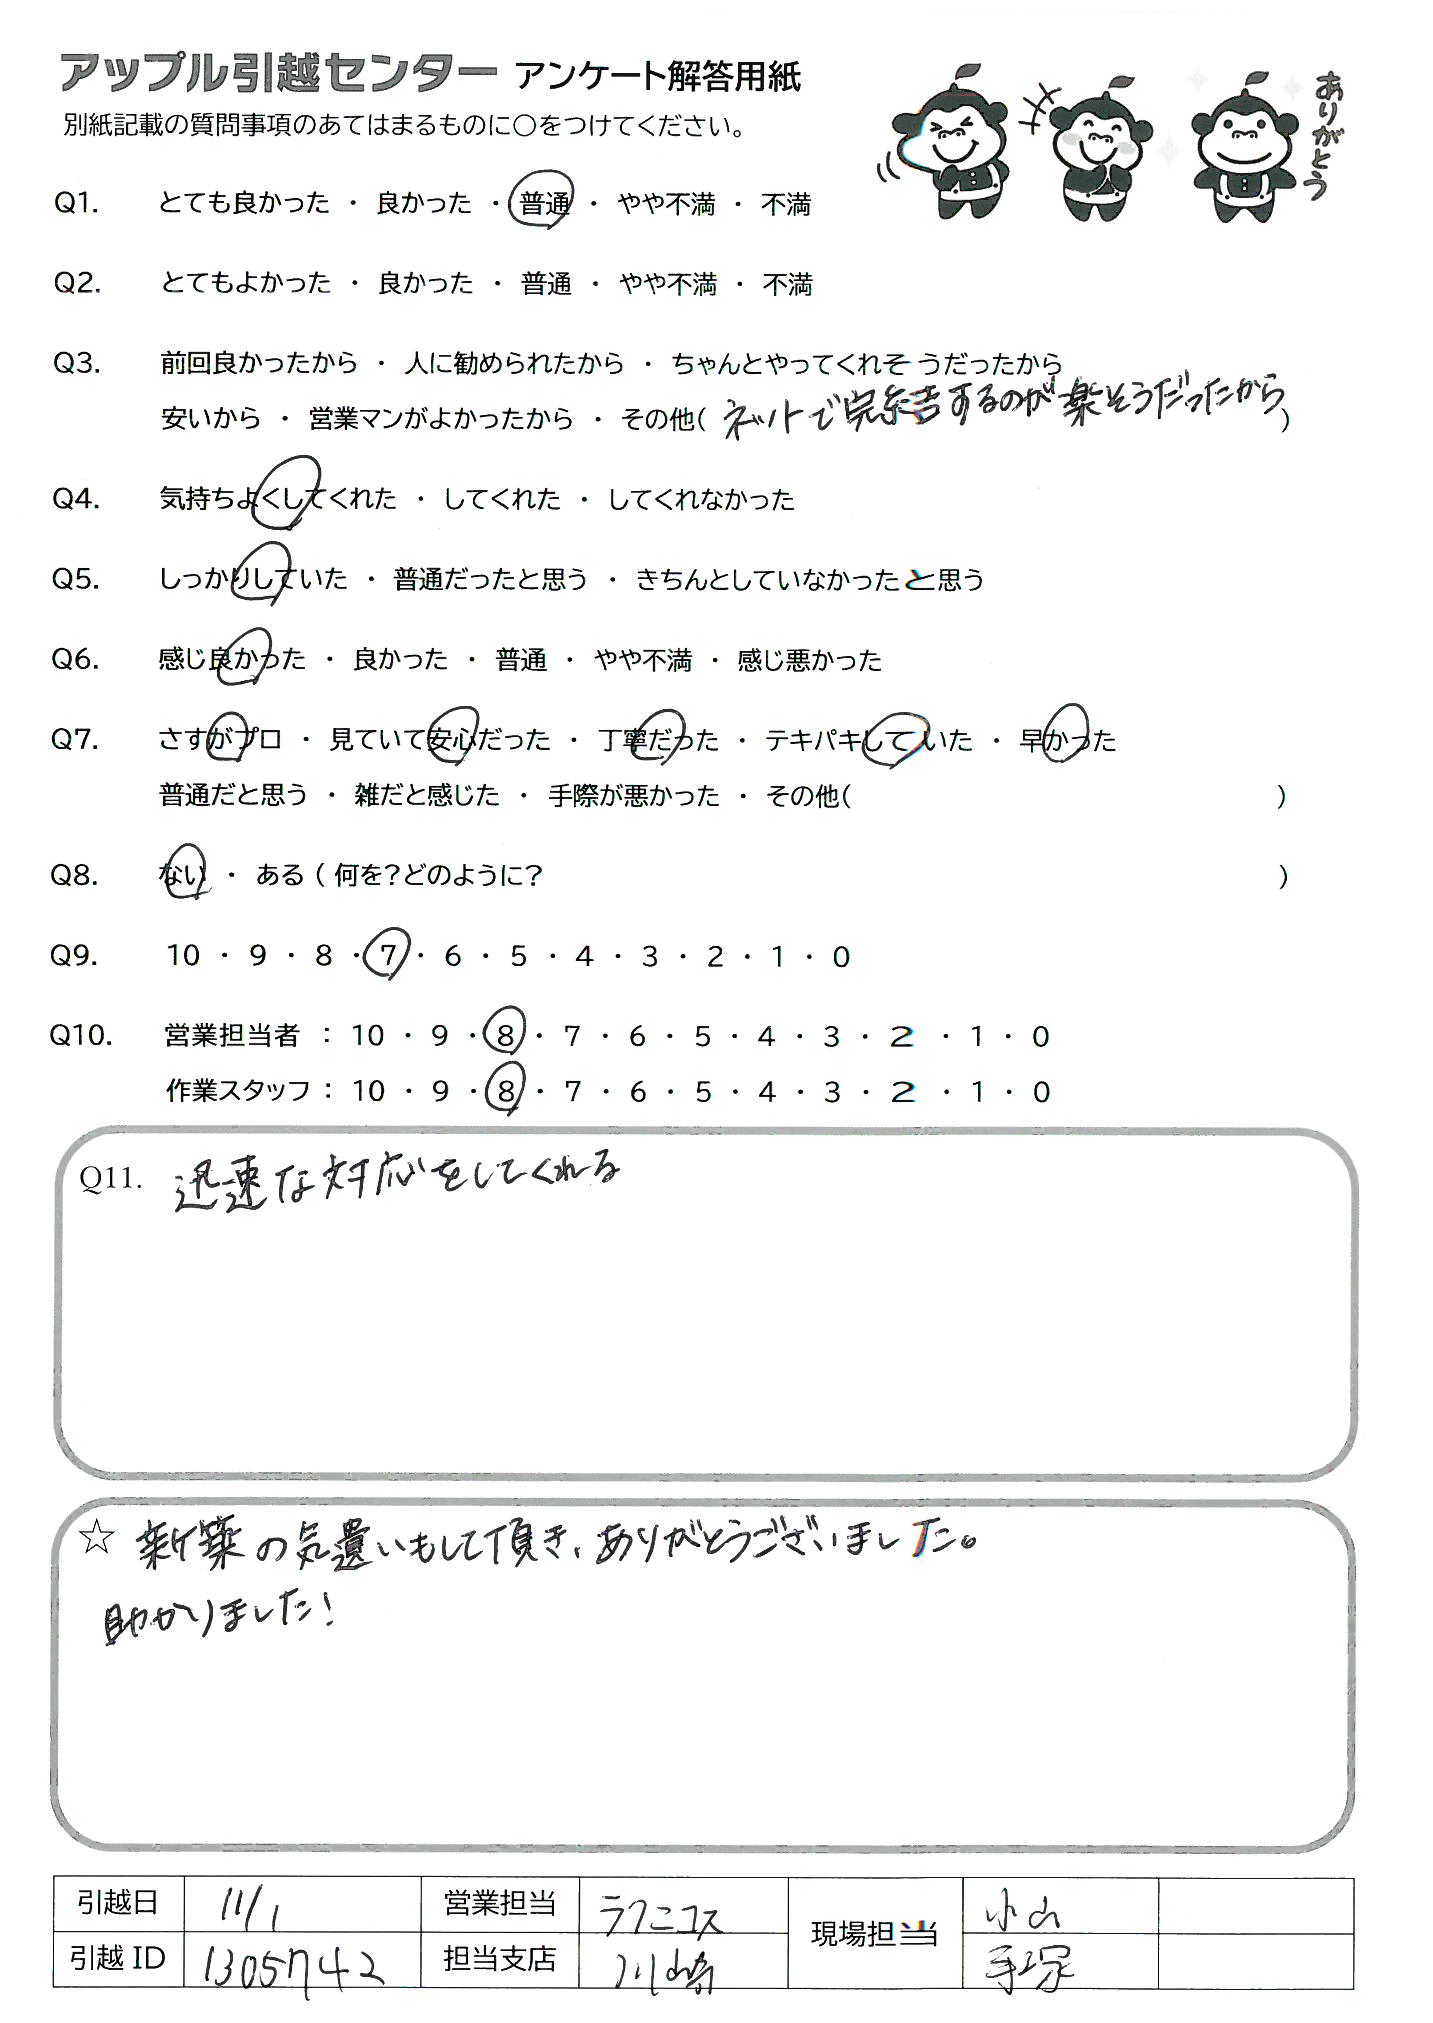 アップル引越センター アンケート解答用紙
ありがとう
別紙記載の質問事項のあてはまるものに○をつけてください。
Q1. とても良かった ・ 良かった ・ 普通 ・ やや不満 ・ 不満
Q2. とてもよかった ・ 良かった ・ 普通 ・ やや不満 ・ 不満
Q3. 前回良かったから ・ 人に勧められたから ・ ちゃんとやってくれそうだったから
安いから ・ 営業マンがよかったから ・ その他( ネットで完結するのが楽そうだったから )
Q4. 気持ちよくしてくれた ・ してくれた ・ してくれなかった
Q5. しっかりしていた ・ 普通だったと思う ・ きちんとしていなかったと思う
Q6. 感じ良かった ・ 良かった ・ 普通 ・ やや不満 ・ 感じ悪かった
Q7. さすがプロ ・ 見ていて安心だった ・ 丁寧だった ・ テキパキしていた ・ 早かった
普通だと思う ・ 雑だと感じた ・ 手際が悪かった ・ その他( )
Q8. ない ・ ある ( 何を?どのように? )
Q9. 10 ・ 9 ・ 8 ・ 7 ・ 6 ・ 5 ・ 4 ・ 3 ・ 2 ・ 1 ・ 0
Q10. 営業担当者 : 10 ・ 9 ・ 8 ・ 7 ・ 6 ・ 5 ・ 4 ・ 3 ・ 2 ・ 1 ・ 0
作業スタッフ : 10 ・ 9 ・ 8 ・ 7 ・ 6 ・ 5 ・ 4 ・ 3 ・ 2 ・ 1 ・ 0
Q11. 迅速な対応をしてくれる
☆ 新築の気遣いもして頂き、ありがとうございました。
助かりました!
引越日 11/1 営業担当 ラクニコス 現場担当 小山
引越 ID 1305742 担当支店 川崎 手塚